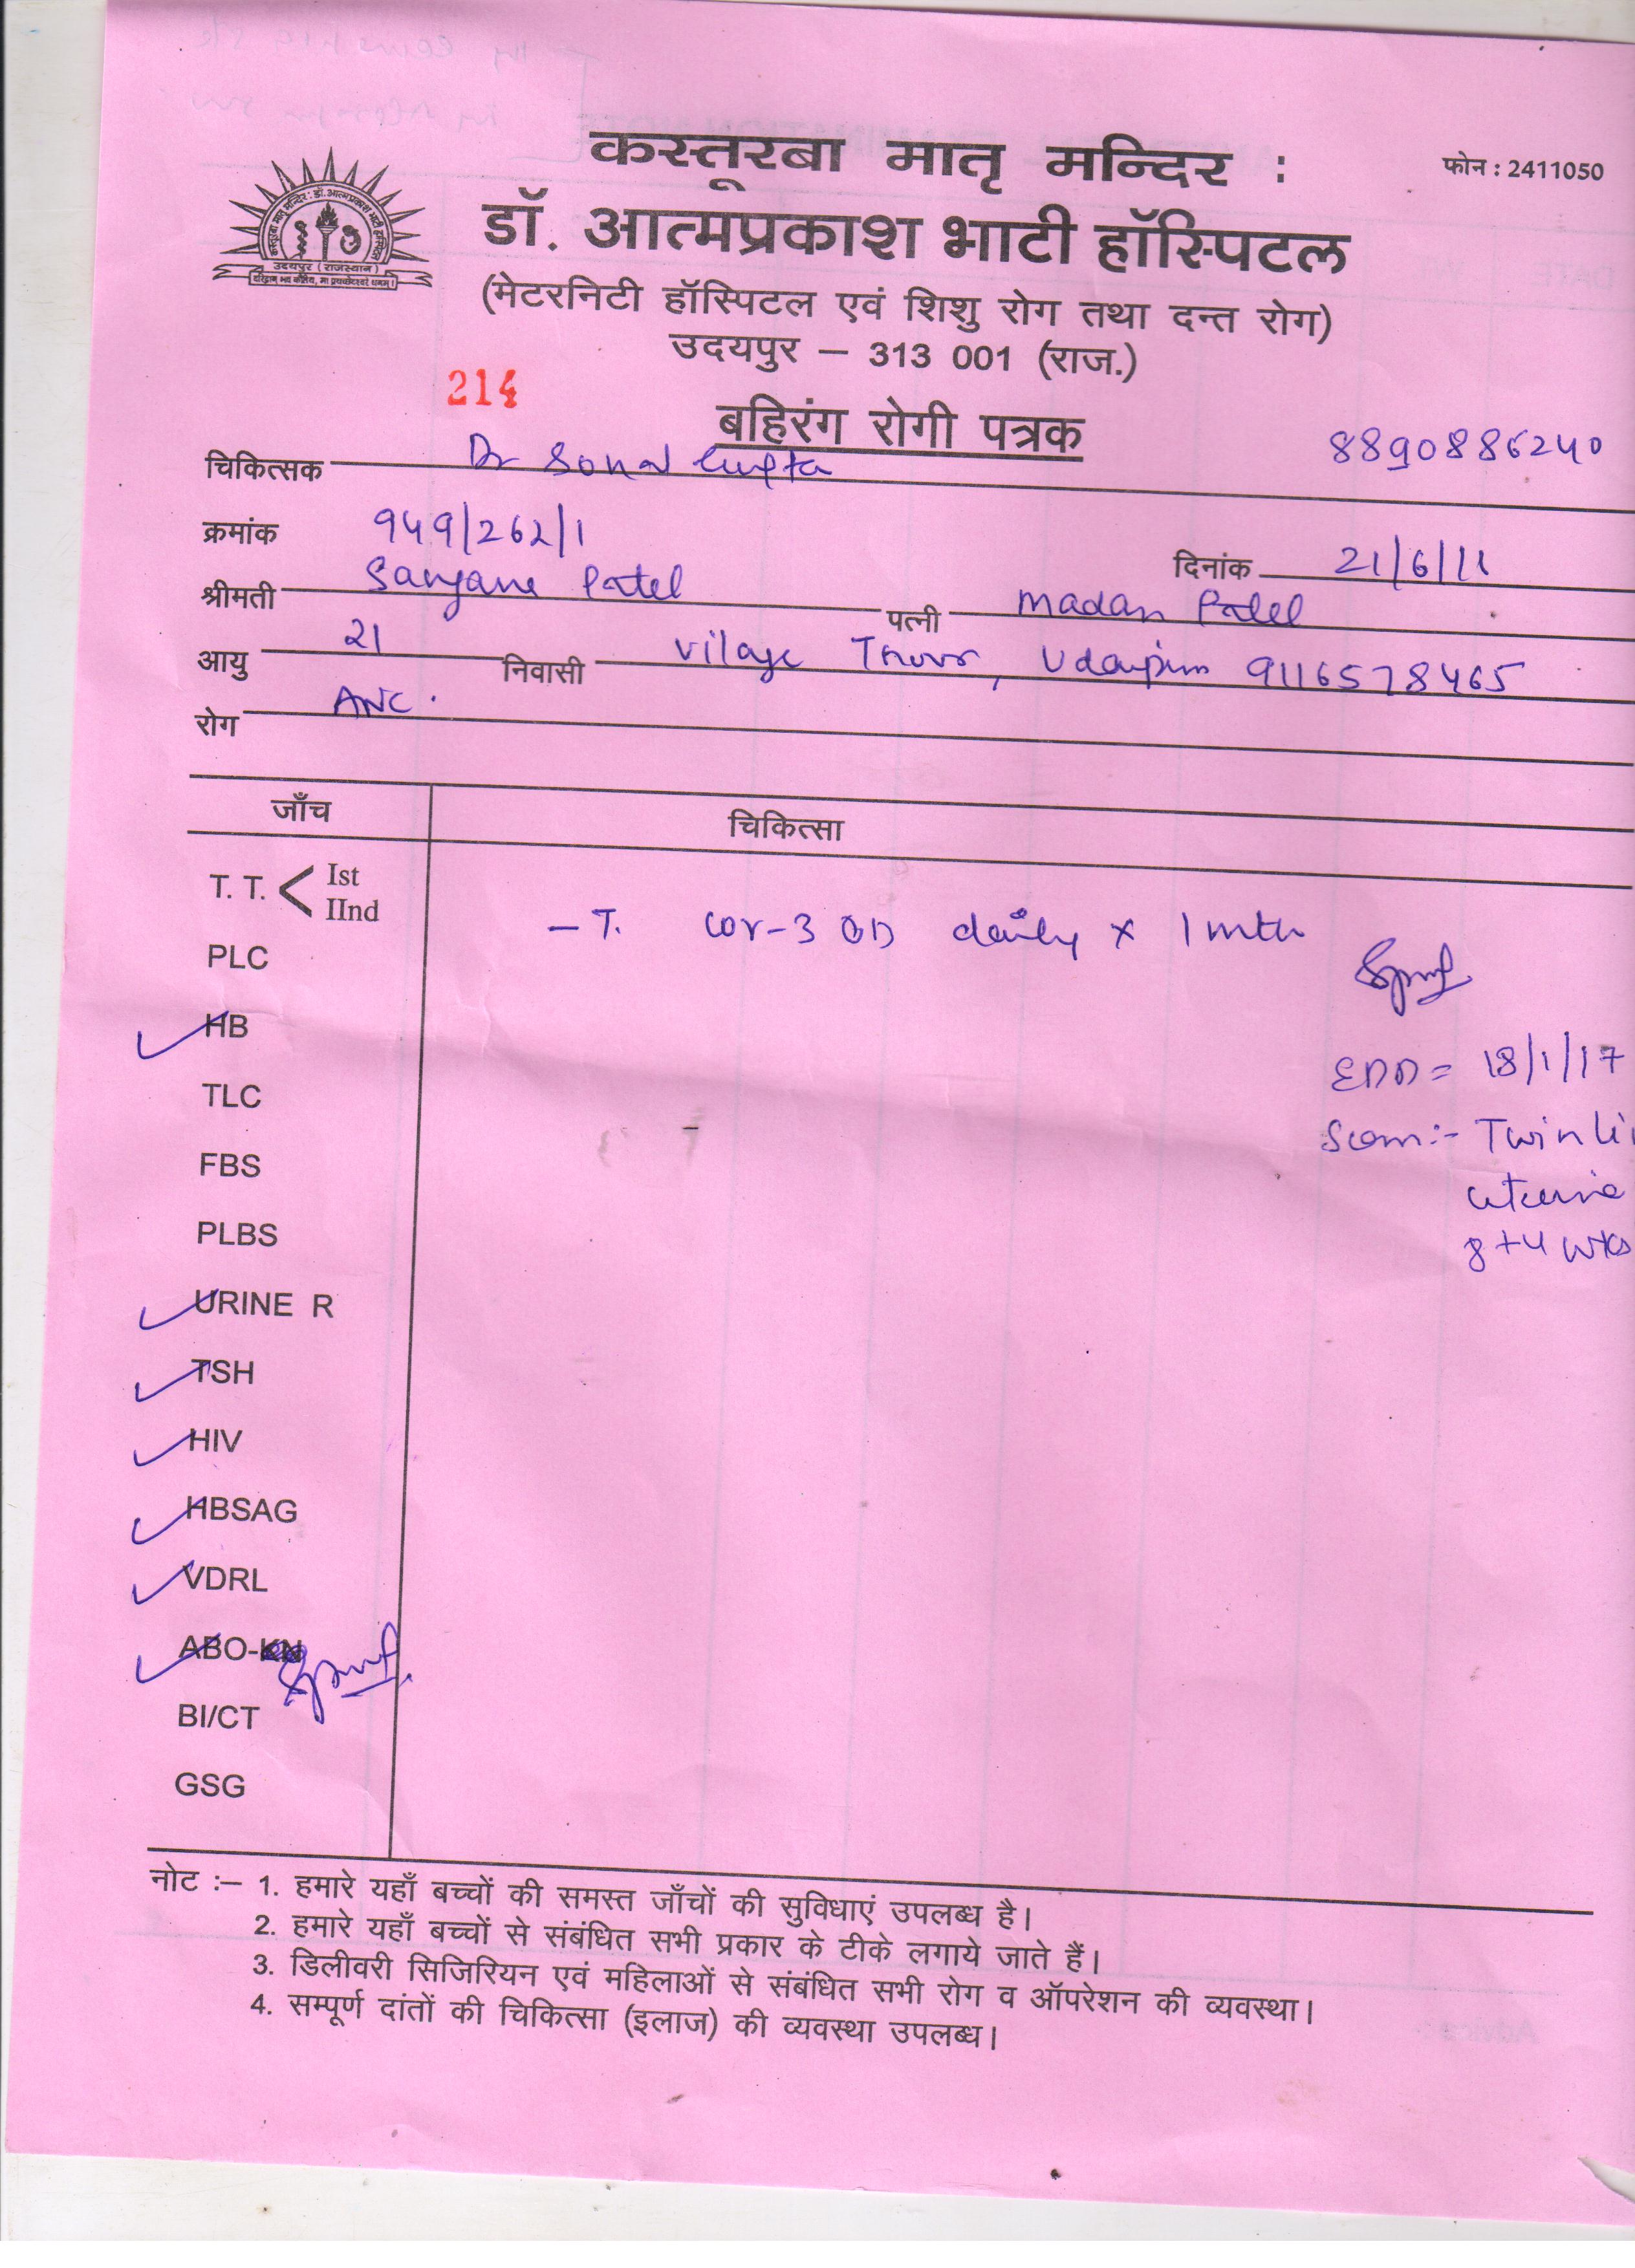 कस्तूरबा मातृ मन्दिर :
फोन : 2411050
डॉ. आत्मप्रकाश भाटी हॉस्पिटल
(मेटरनिटी हॉस्पिटल एवं शिशु रोग तथा दन्त रोग)
उदयपुर – 313 001 (राज.)
उदयपुर (राजस्थान)
214
बहिरंग रोगी पत्रक
8890886240
चिकित्सक Dr Sonal Gupta
क्रमांक 949/262/1
दिनांक 21/6/11
श्रीमती Patel पत्नी Madan Patel
आयु 21 निवासी Vilage Udaipur 9116578465
रोग ANC.
जाँच चिकित्सा
T. T. < Ist
IInd
– T. cor-3 OD daily x 1 mth
PLC
HB
EDD = 18/1/17
TLC
Scan:- Twin li
FBS
uterine
PLBS
8+4 wks
URINE R
TSH
HIV
HBSAG
VDRL
ABO-
BI/CT
GSG
नोट :– 1. हमारे यहाँ बच्चों की समस्त जाँचों की सुविधाएं उपलब्ध है।
2. हमारे यहाँ बच्चों से संबंधित सभी प्रकार के टीके लगाये जाते हैं।
3. डिलीवरी सिजिरियन एवं महिलाओं से संबंधित सभी रोग व ऑपरेशन की व्यवस्था।
4. सम्पूर्ण दांतों की चिकित्सा (इलाज) की व्यवस्था उपलब्ध।